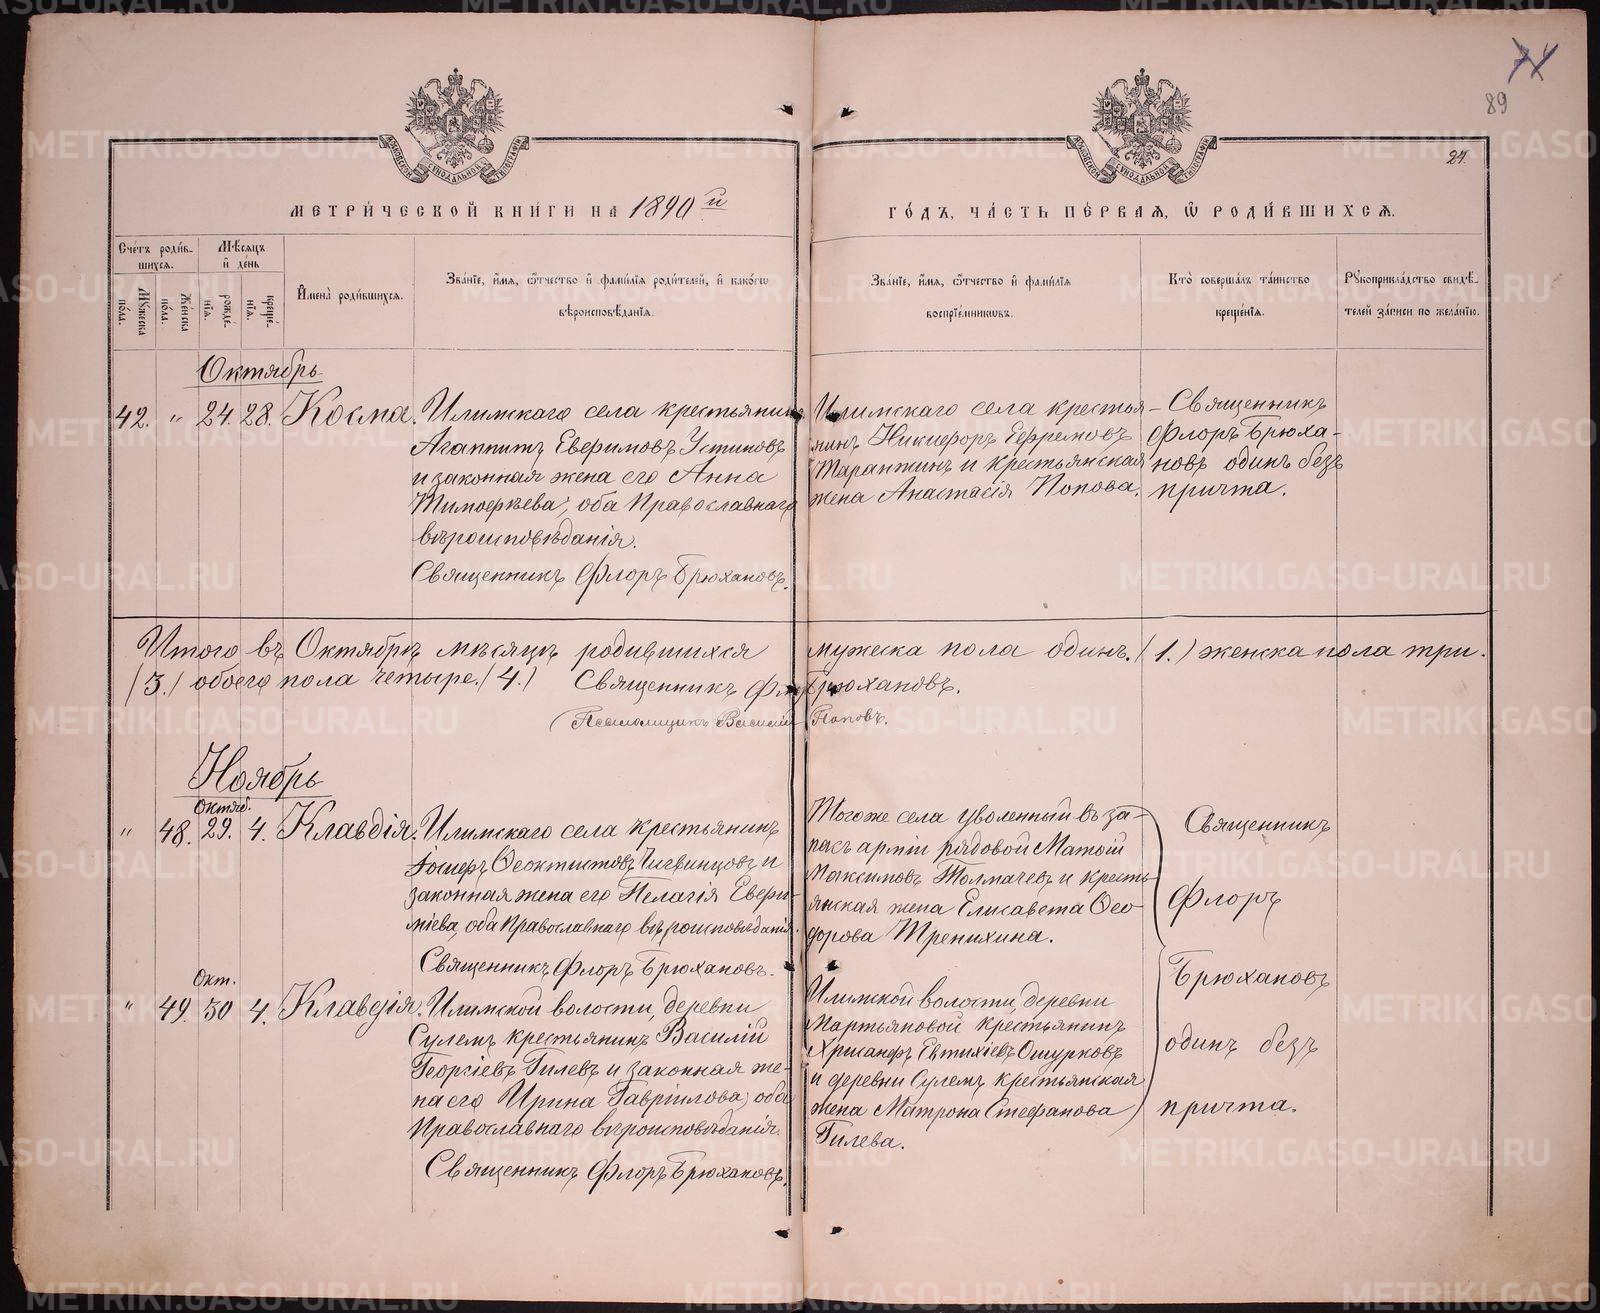 74
89
24.
МЕТРИ́ЧЕСКОЙ КНИ́ГИ НА 1890 й
ГО́ДЪ, ЧА́СТЬ ПЕ́РВАЯ, Ѿ РОДИ́ВШИХСЯ.
Сче́тъ роди́в-
шихся.
Мѣ́сяцъ
и҆ де́нь
Мꙋжеска по́ла.
Же́нска по́ла.
рожде́нїя.
креще́нїя.
И҆мена̀ роди́вшихся.
Зва́нїе, и҆́мя, ѻ҆́тчество и҆ фами́лїя роди́телей, и҆ како́гѡ
вѣроисповѣ́данїя.
Зва́нїе, и҆́мя, ѻ҆́тчество и҆ фами́лїя
воспрїе́мникѡвъ.
Кто̀ соверша́лъ та́инство
креще́нїя.
Рꙋкоприкла́дство свидѣ́-
телей за́писи по жела́нїю.
Октябрь
42. " 24. 28. Косма.
Илимскаго села крестьянинъ
Агаппитъ Евфимовъ Устиновъ
и законная жена его Анна
Тимофѣева, оба Православнаго
вѣроисповѣданія.
Священникъ Флоръ Брюхановъ.
Илимскаго села крестья-
нинъ Никифоръ Ефремовъ
Таранжинъ и крестьянская
жена Анастасія Попова.
Священникъ
Флоръ Брюха-
новъ одинъ безъ
причта.
Итого въ Октябрѣ мѣсяцѣ родившихся мужеска пола одинъ. (1.) женска пола три.
(3.) обоего пола четыре. (4.) Священникъ Флоръ Брюхановъ.
Псаломщикъ Василій Поповъ.
Ноябрь
" 48. Октяб. 29. 4. Клавдія.
Илимскаго села крестьянинъ
Іосифъ Ѳеоктистовъ Чигвинцовъ и
законная жена его Пелагія Евфи-
міева, оба Православнаго вѣроисповѣданія.
Священникъ Флоръ Брюхановъ.
Тогоже села уволенный въ за-
пасъ арміи рядовой Матѳій
Максимовъ Толмачевъ и кресть-
янская жена Елисавета Ѳео-
дорова Трепихина.
" 49. Окт. 30 4. Клавдія.
Илимской волости, деревни
Сулемъ крестьянинъ Василій
Георгіевъ Гилевъ и законная же-
на его Ирина Гавріилова, оба
Православнаго вѣроисповѣданія.
Священникъ Флоръ Брюхановъ.
Илимской волости, деревни
Мартьяновой крестьянинъ
Хрисанфъ Евтихіевъ Ошурковъ
и деревни Сулемъ крестьянская
жена Матрона Стефанова
Гилева.
Священникъ
Флоръ
Брюхановъ
одинъ безъ
причта.
METRIKI.GASO-URAL.RU